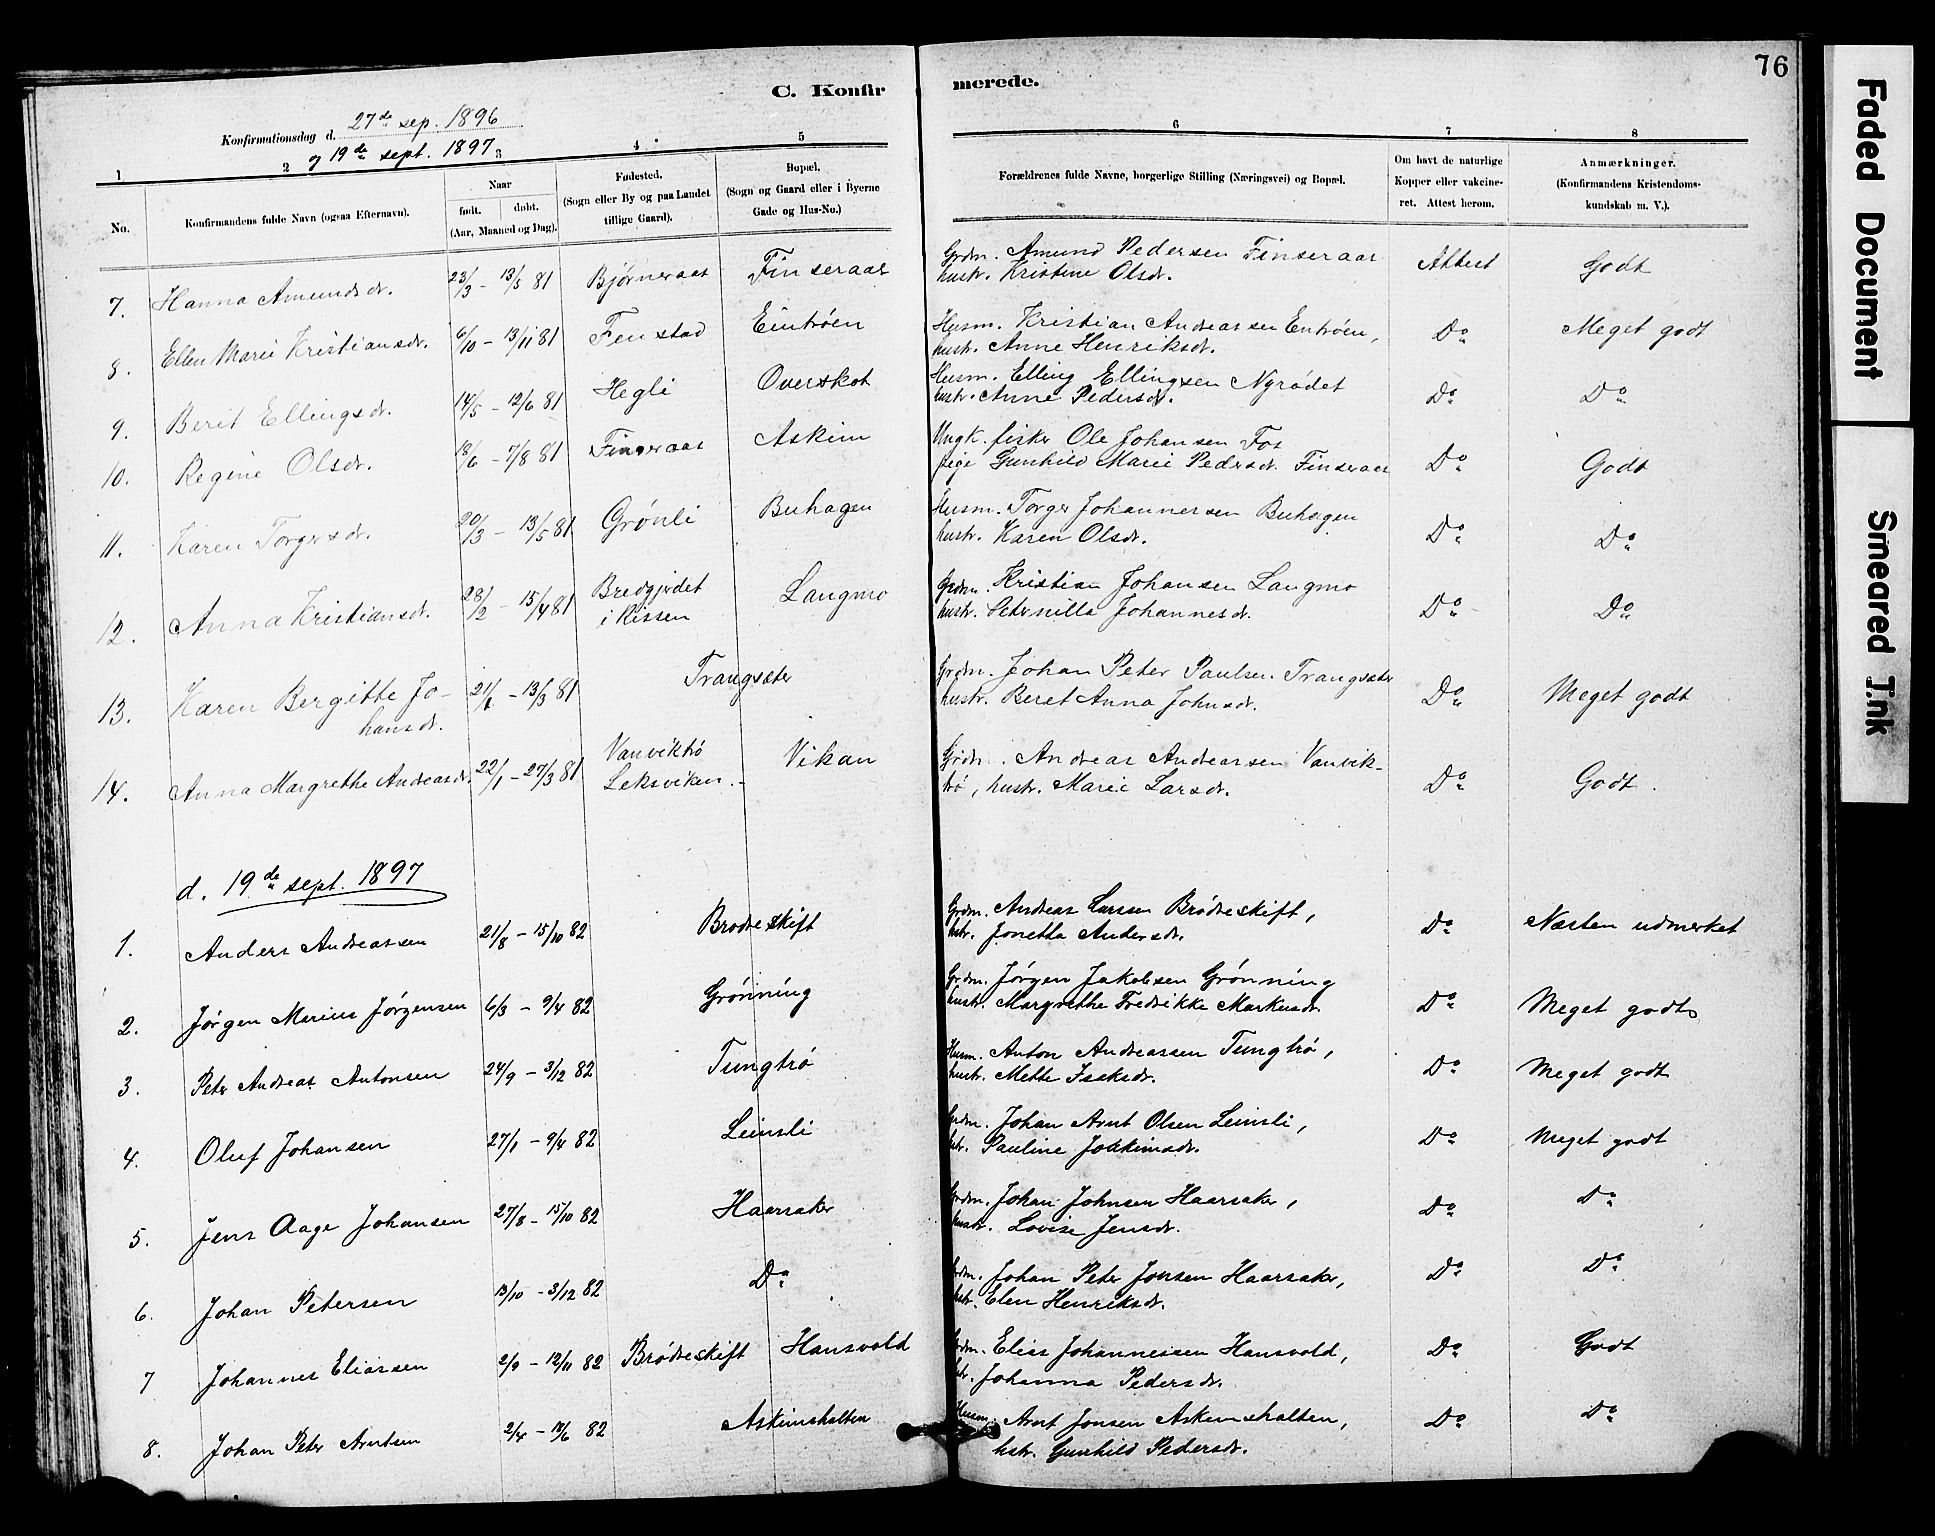 76
C. Konfirmerede.
Konfirmationsdag d. 27de sep. 1896
og 19de sept. 1897
1 2 3 4 5 6 7 8
No. Konfirmandens fulde Navn (ogsaa Efternavn). Naar født. døbt. (Aar, Maaned og Dag). Fødested. (Sogn eller By og paa Landet tillige Gaard). Bopæl. (Sogn og Gaard eller i Byerne Gade og Hus-No.) Forældrenes fulde Navne, borgerlige Stilling (Næringsvei) og Bopæl. Om havt de naturlige Kopper eller vakcineret. Attest herom. Anmærkninger. (Konfirmandens Kristendomskundskab m. V.).
7. Hanna Amundsdr. 23/3 - 13/5 81 Bjørneraas Finseraas Grdm. Amund Pedersen Finseraas Attest Godt
hustr. Kristine Olsdr.
8. Ellen Marie Kristiansdr. 6/10 - 13/11 81 Fenstad Eintrøen Husm. Kristian Andreassen Entrøen, Do Meget godt
hustr. Anne Henriksdr.
9. Berit Ellingsdr. 14/5 - 12/6 81 Hegli Overskot Husm. Elling Ellingsen Nyrødet Do Do
hustr. Anne Pedersdr.
10. Regine Olsdr. 18/6 - 7/8 81 Finseraas Askim Ungk. fisker Ole Johansen Fos
pige Gunhild Marie Pedersdr. Finseraas Do Godt
11. Karen Torgersdr. 20/3 - 13/5 81 Grønli Buhagen Husm. Torger Johannessen Buhagen
hustr. Karen Olsdr. Do Do
12. Anna Kristiansdr. 28/2 - 15/4 81 Bredgjerdet i Rissen Langmo Grdm. Kristian Johansen Langmo
hustr. Peternilla Johannesdr. Do Do
13. Karen Bergitte Johansdr. 21/1 - 13/3 81 Trangsæter Grdm. Johan Peter Paulsen Trangsæter
hustr. Beret Anna Johnsdr. Do Meget godt
14. Anna Margrethe Andreasdr. 22/1 - 27/3 81 Vanviktrø Leksviken Vikan Grdm. Andreas Andreassen Vanviktrø, hustr. Marie Larsdr. Do Godt.
d. 19de sept. 1897
1. Anders Andreassen 21/8 - 15/10 82 Brødreskift Grdm. Andreas Larsen Brødreskift,
hstr. Jonetta Andersdr. Do Næsten udmerket
2. Jørgen Marius Jørgensen 6/3 - 9/4 82 Grønning Grdm. Jørgen Jakobsen Grønning
hustr. Margrethe Fredrikke Markusdr. Do Meget godt
3. Peter Andreas Antonsen 24/9 - 3/12 82 Tungtrø Husm. Anton Andreassen Tungtrø,
hustr. Mette Isaksdr. Do Meget godt
4. Oluf Johansen 27/1 - 9/4 82 Leinsli Grdm. Johan Arnt Olsen Leinsli,
hstr. Pauline Joakimsdr. Do Meget godt
5. Jens Aage Johansen 27/8 - 15/10 82 Haarsaker Grdm. Johan Johnsen Haarsaker,
hustr. Lovise Jensdr. Do Do
6. Johan Petersen 13/10 - 3/12 82 Do Grdm. Johan Peter Jonsen Haarsaker,
hstr. Elen Henriksdr. Do Do
7 Johannes Eliassen 2/9 - 12/11 82 Brødreskift Hansvold Grdm. Elias Johannessen Hansvold,
hstr. Johanna Pedersdr. Do Godt
8. Johan Peter Arntsen 2/4 - 18/6 82 Askimshalten Husm. Arnt Jonsen Askimshalten,
hstr. Gunhild Pedersdr. Do Do
Faded Document
Smeared Ink